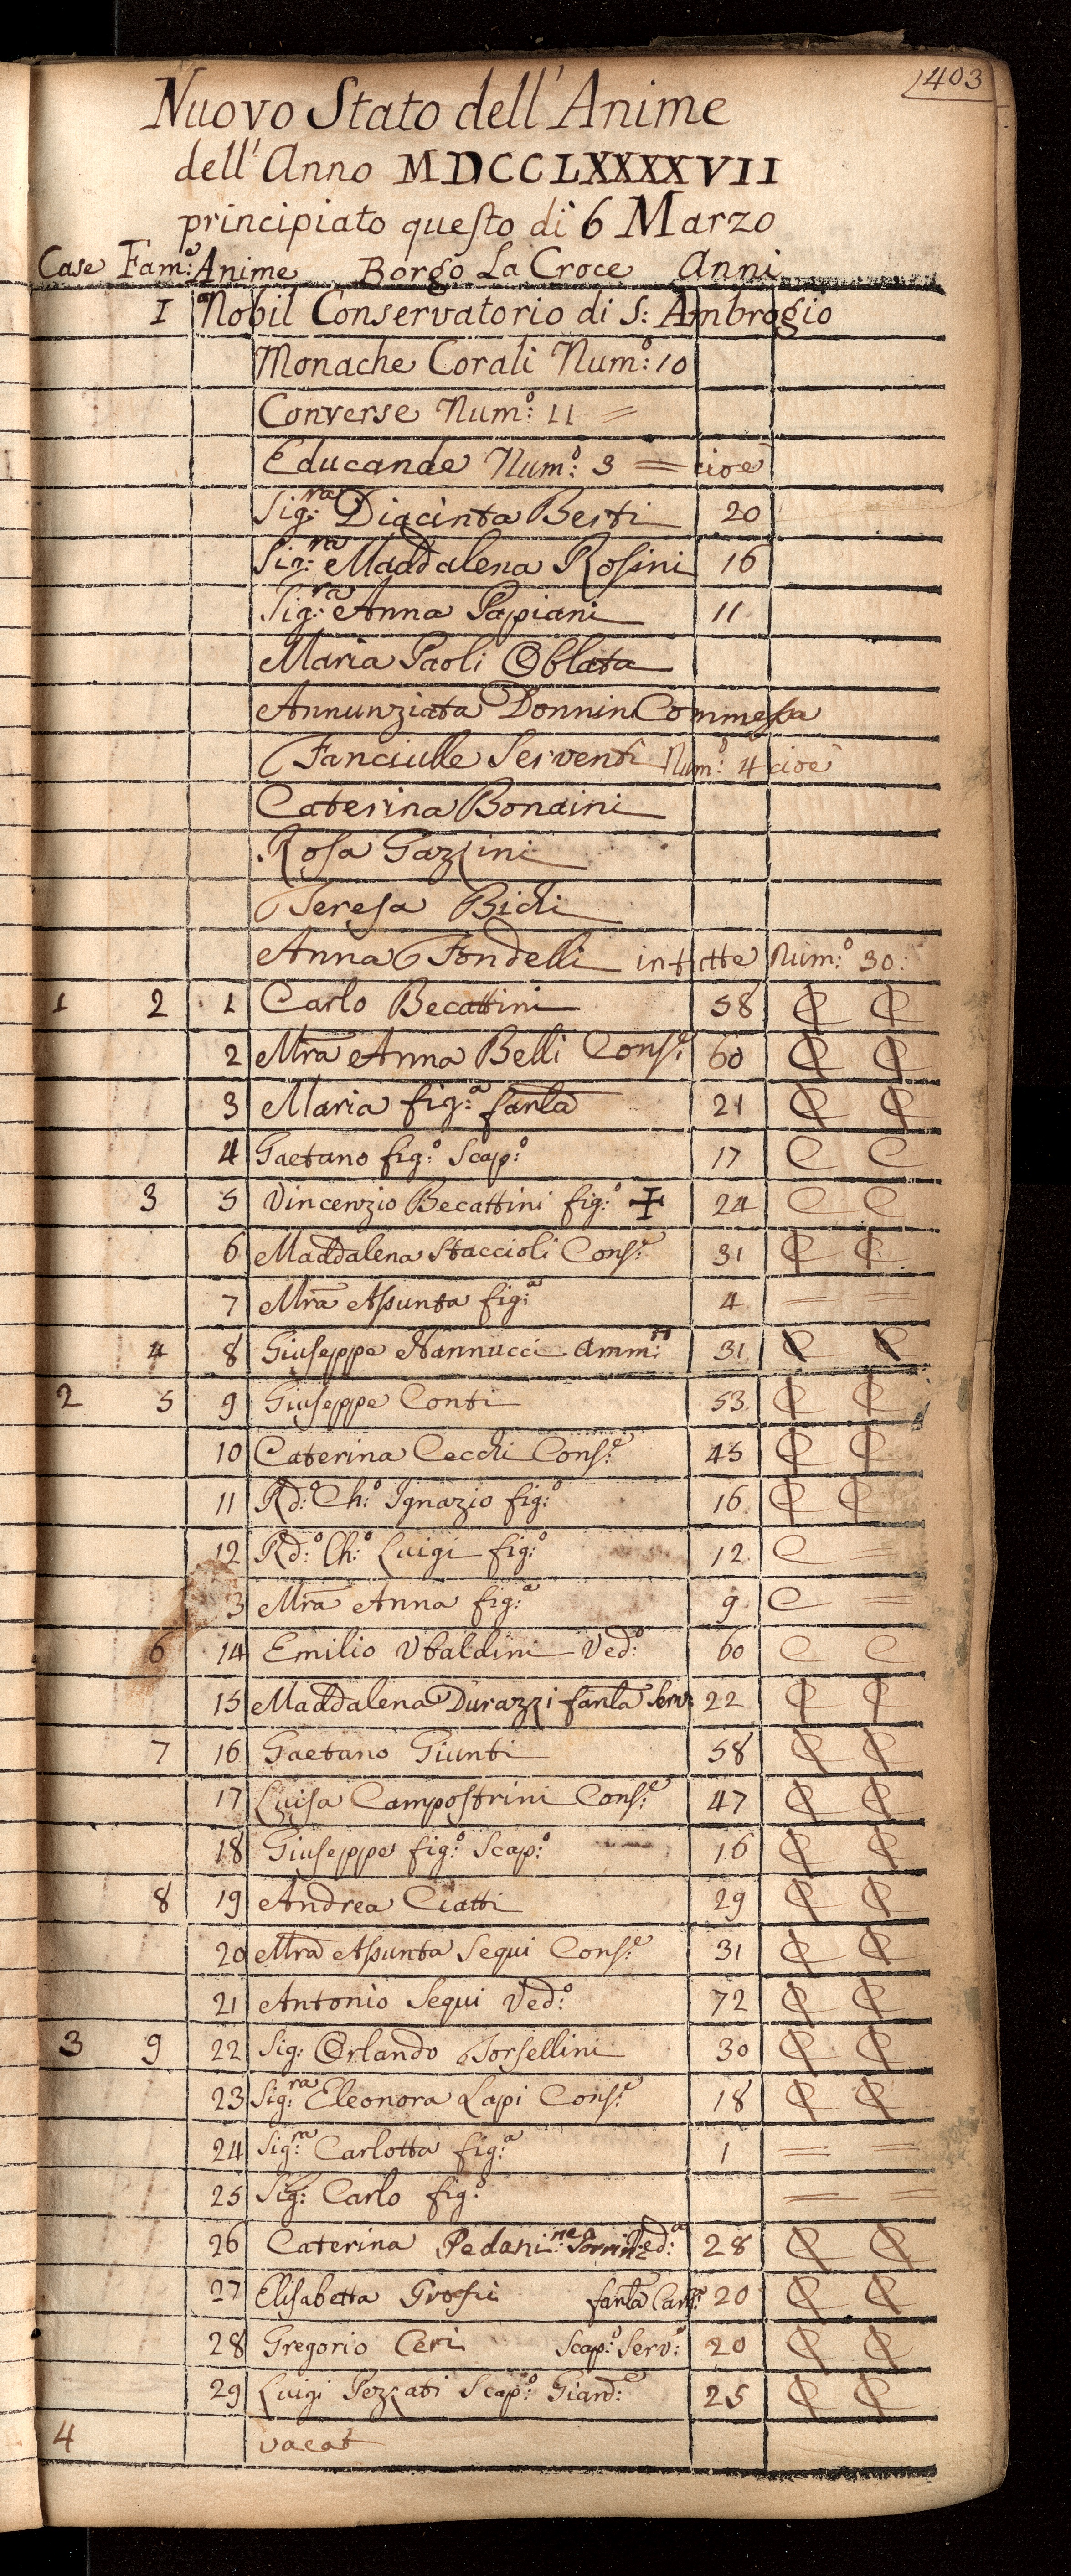 403
Nuovo Stato dell'Anime
dell'Anno MDCCLXXXXVII
principiato questo dì 6 Marzo
Case Fam:e Anime Borgo La Croce Anni
1 Nobil Conservatorio di S: Ambrogio
Monache Corali Num:o 10
Converse Num:o 11 =
Educande Num:o 3 = cioè
Sig:ra Diacinta Berti 20
Sig:ra Maddalena Rosini 16
Sig:ra Anna Papiani 11
Maria Paoli Oblata
Annunziata Donnini Commessa
Fanciulle Serventi Num:o 4 cioè
Caterina Bondini
Rosa Gazzini
Teresa Bichi
Anna Fondelli in tutte Num:o 30:
1 2 1 Carlo Becattini 58 C C
2 Mra Anna Belli Cons:e 60 C C
3 Maria fig:a fanla 21 C C
4 Gaetano fig:o Scap:o 17 C C
3 5 Vincenzio Becattini fig:o ✝ 24 C C
6 Maddalena Staccioli Cons:e 31 C C
7 Mra Assunta fig:a 4 = =
4 8 Giuseppe Nannucci Amm:to 31 C C
2 5 9 Giuseppe Conti 53 C C
10 Caterina Cecchi Cons:e 45 C C
11 Rd:o Ch:o Ignazio fig:o 16 C C
12 Rd:o Ch:o Luigi fig:o 12 C =
3 Mra Anna fig:a 9 C =
6 14 Emilio Ubaldini Ved:o 60 C C
15 Maddalena Durazzi fanla Serv: 22 C C
7 16 Gaetano Giunti 58 C C
17 Luisa Campostrini Cons:e 47 C C
18 Giuseppe fig:o Scap:o 16 C C
8 19 Andrea Ciatti 29 C C
20 Mra Assunta Segui Cons:e 31 C C
21 Antonio Segui Ved:o 72 C C
3 9 22 Sig: Orlando Torsellini 30 C C
23 Sig:ra Eleonora Lapi Cons:e 18 C C
24 Sig:ra Carlotta fig:a 1 = =
25 Sig: Carlo fig:o = =
26 Caterina Pedani Ved:a 28 C C
27 Elisabetta Grossi fanla 20 C C
28 Gregorio Ceri Scap:o Serv:o 20 C C
29 Luigi Pezzati Scap:o Giard:e 25 C C
4 vacat